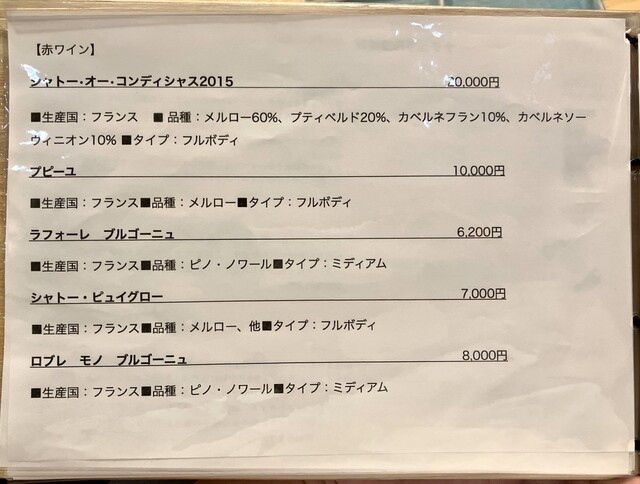 【赤ワイン】
シャトー・オー・コンディシャス2015 20,000円
■生産国：フランス ■ 品種：メルロー60%、プティベルド20%、カベルネフラン10%、カベルネソー
ヴィニオン10% ■タイプ：フルボディ
プピーユ 10,000円
■生産国：フランス■品種：メルロー■タイプ：フルボディ
ラフォーレ ブルゴーニュ 6,200円
■生産国：フランス■品種：ピノ・ノワール■タイプ：ミディアム
シャトー・ピュイグロー 7,000円
■生産国：フランス■品種：メルロー、他■タイプ：フルボディ
ロブレ モノ ブルゴーニュ 8,000円
■生産国：フランス■品種：ピノ・ノワール■タイプ：ミディアム